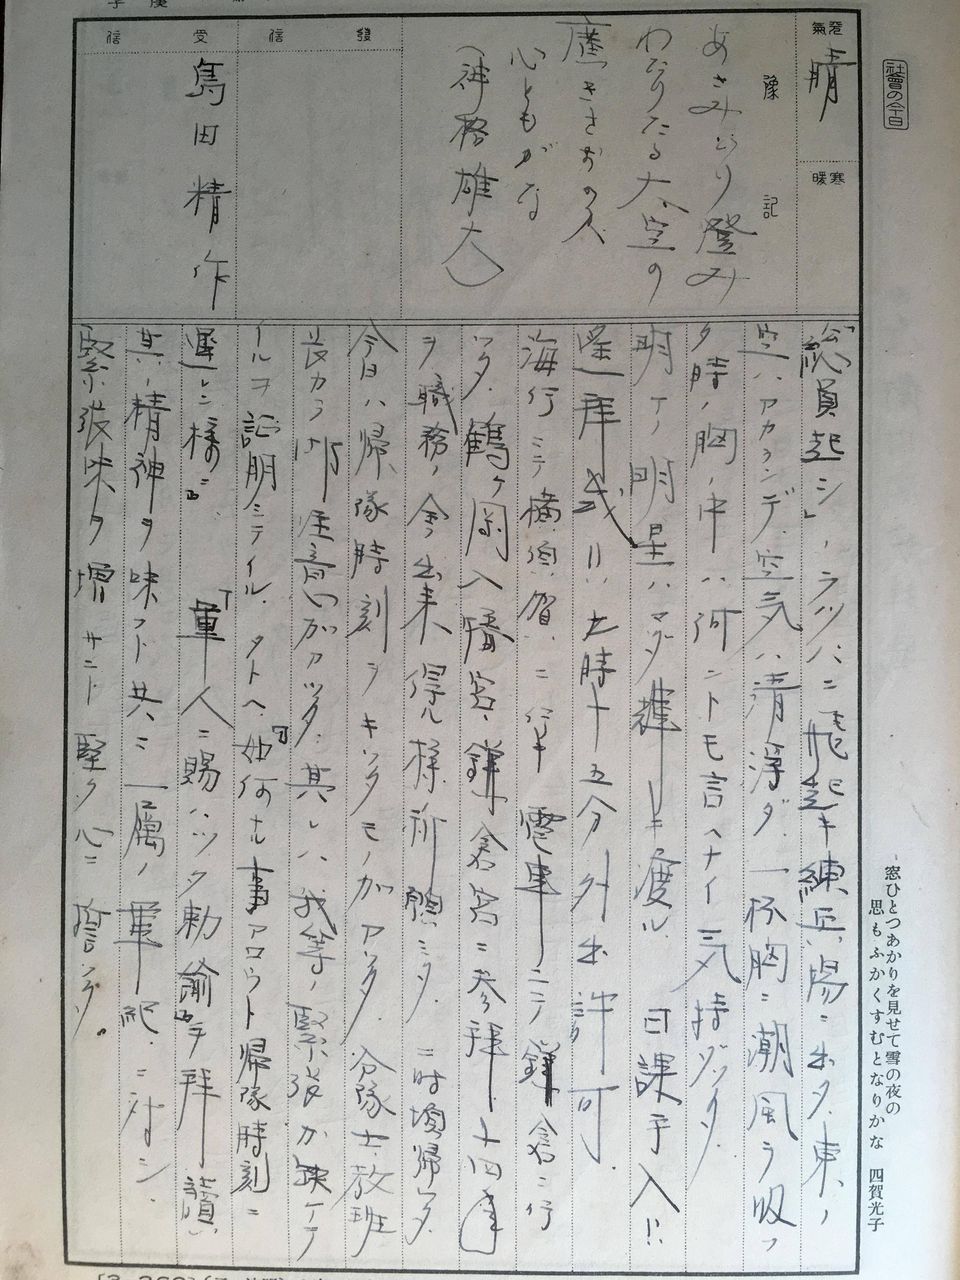 社會の今日
窓ひとつあかりを見せて雪の夜の
思もふかくすむとなりかな 四賀光子
天氣
晴
寒暖
豫記
あさみどり澄み
わたりたる大空の
廣きをおのが
心ともがな
(神格雄大)
發信
受信
島田精作
「総員起シ」ノラツパニ飛起キ練兵場ニ出タ、東ノ
空ハアカランデ空気ハ清浄ダ、一杯胸ニ潮風ヲ吸ツ
タ時ノ胸ノ中ハ何ントモ言ヘナイ気持ダツタ
明ケノ明星ハマダ輝キ渡ル 日課手入!!
遥拝式!! 七時十五分外出許可
海行ニテ横須賀ニ行キ電車ニテ鎌倉ニ行
ツタ、鶴ケ岡八幡宮、鎌倉宮ニ参拝
ヲ職務ノ全ウ出来得ル様祈願シタ 二時頃帰ツタ
今日ハ帰隊時刻ヲキツタモノガアツタ 分隊士教班
長カラ御注意ガアツタ、其レハ我等ノ緊張ガ缺ケテ
イルヲ証明シテイル、タトヘ『如何ナル事アロウト帰隊時刻ニ
遅レン様ニ』 「軍人ニ賜ハツタ勅諭」ヲ拝讀
其ノ精神ヲ味フト共ニ一層ノ軍紀ニ対シ
緊張味ヲ増サント堅ク心ニ誓ツタ。